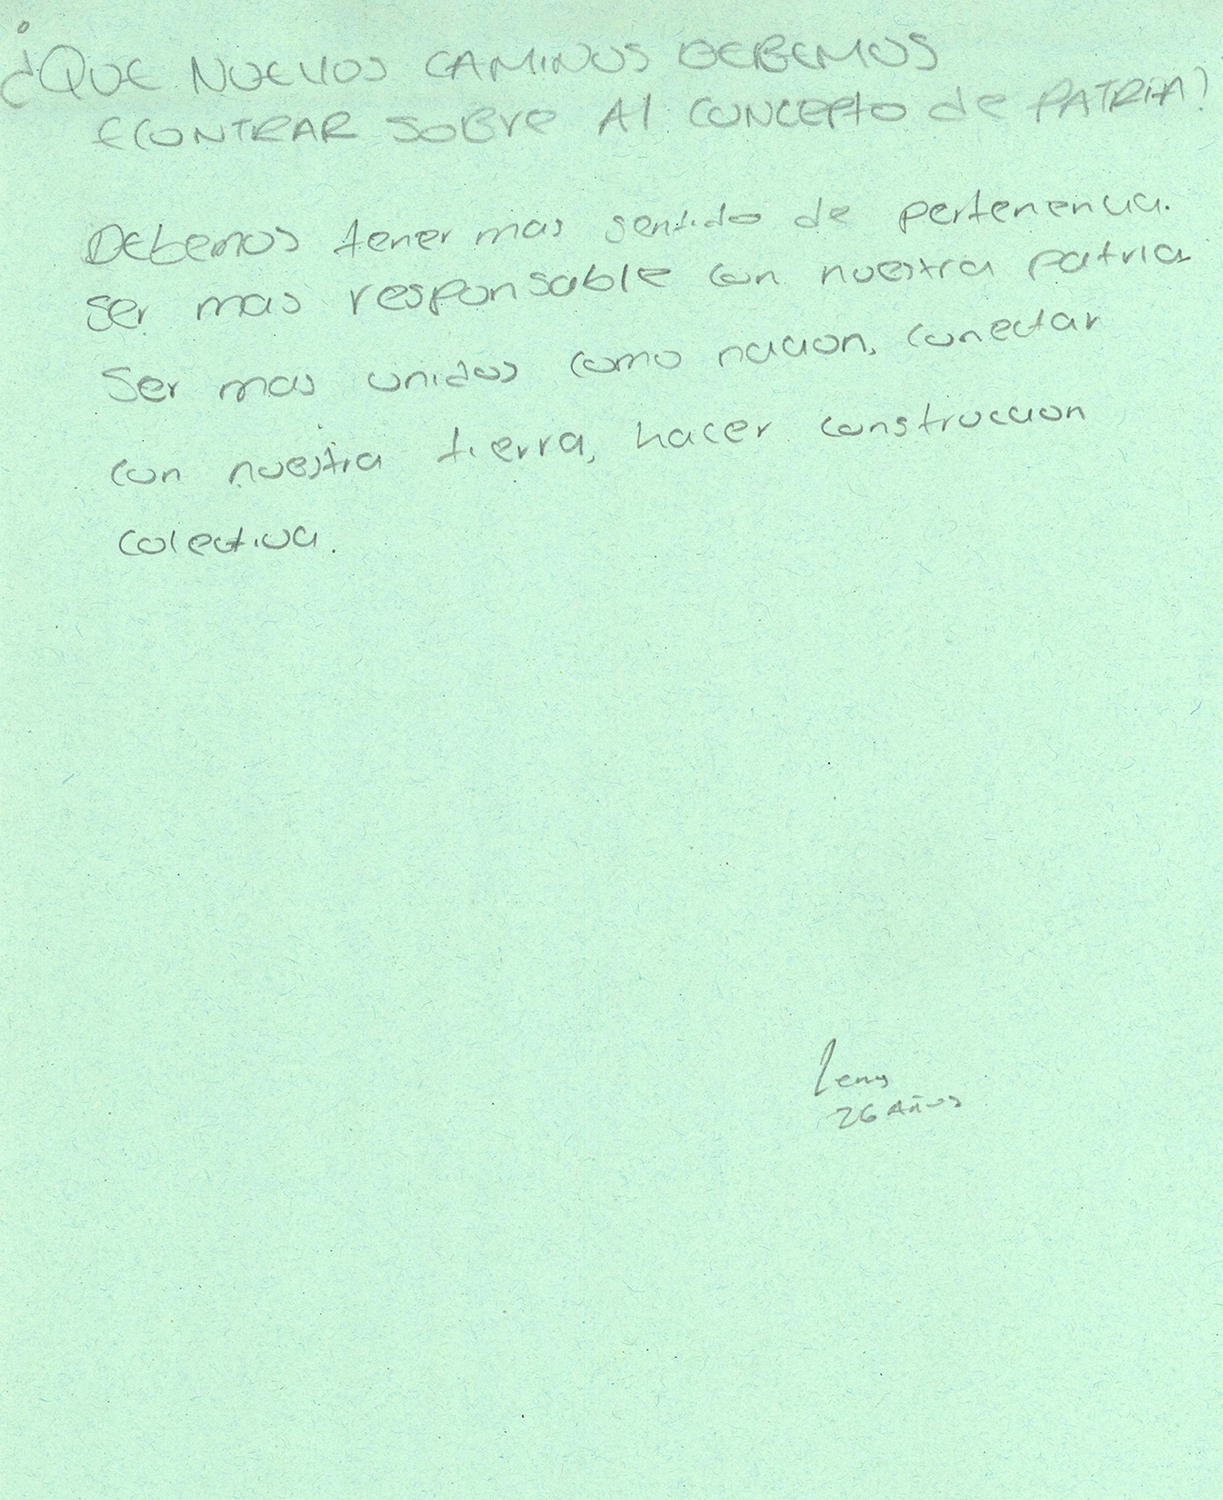 ¿QUE NUEVOS CAMINOS DEBEMOS
ECONTRAR SOBRE Al CONCEPTO de PATRIA?
Debemos tener mas sentido de pertenencia.
Ser mas responsable con nuestra patria
Ser mas unidos como nacion, conectar
con nuestra tierra, hacer construccion
colectiva.
26 AÑOS